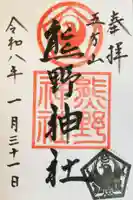 奉拝
五方山
熊野神社
令和八年一月三十一日
熊野
神社